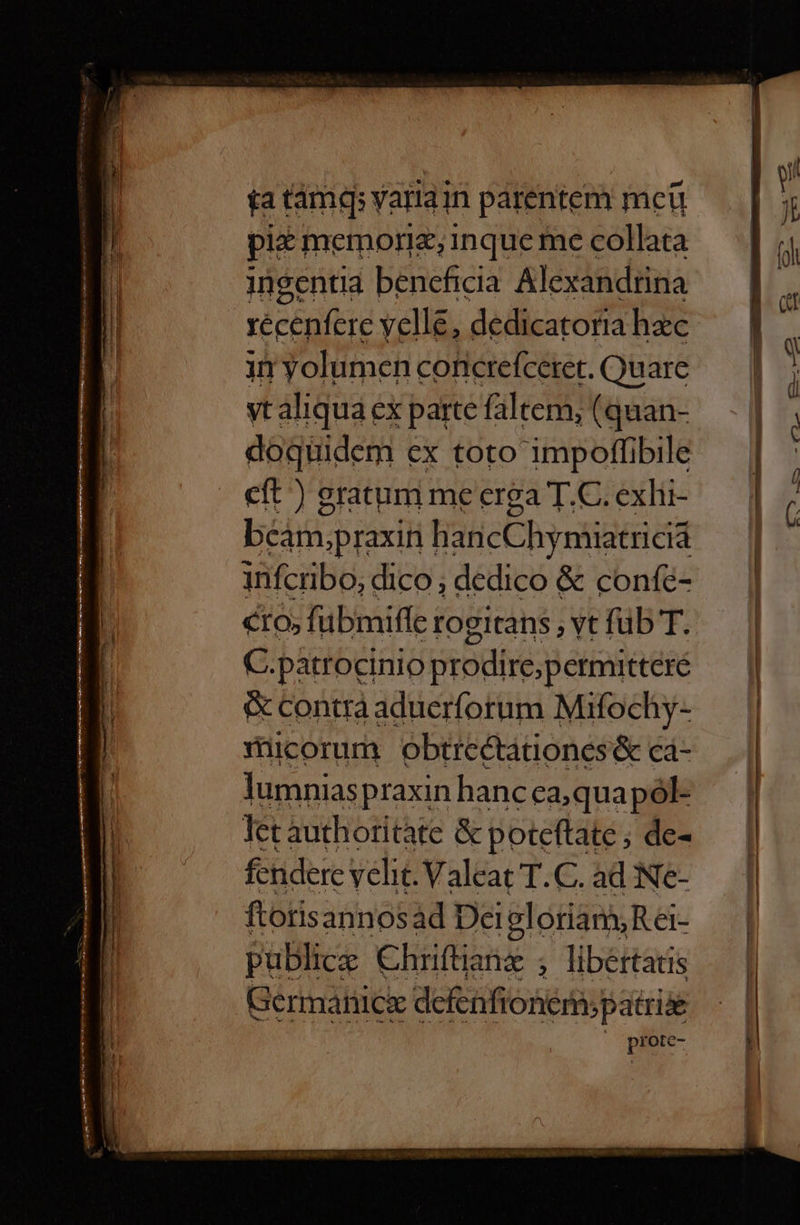 ta tãmq; varia in parentem meũ
piæ memoriæ, inque me collata
ingentia beneficia Alexandrina
recenſere vellẽ, dedicatoria hæc
in volumen concreſceret. Quare
vt aliqua ex parte ſaltem, (quan-
doquidem ex toto impoſſibile
eſt ) gratum me erga T.C. exhi-
beam, praxin hanc Chymiatriciã
inſcribo, dico, dedico & conſe-
cro, ſubmiſſe rogitans, vt ſub T.
C. patrocinio prodire, permittere
& contra aduerſorum Miſochy-
micorum obtrectationes & ca-
lumnias praxin hanc ea, qua pol-
let authoritate & poteſtate, de-
fendere velit. Valeat T.C. ad Ne-
ſtoris annos ad Dei gloriam, Rei-
publicæ Chriſtianæ, libertatis
Germanicæ defenſionem, patriæ
prote-